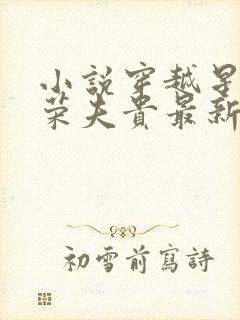 小說穿越星
榮夫貴最新
初雪前寫詩